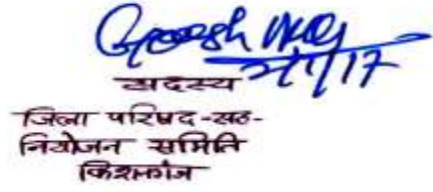 2/1/17
सदस्य
जिला परिषद-सह-
नियोजन समिति
किशनगंज